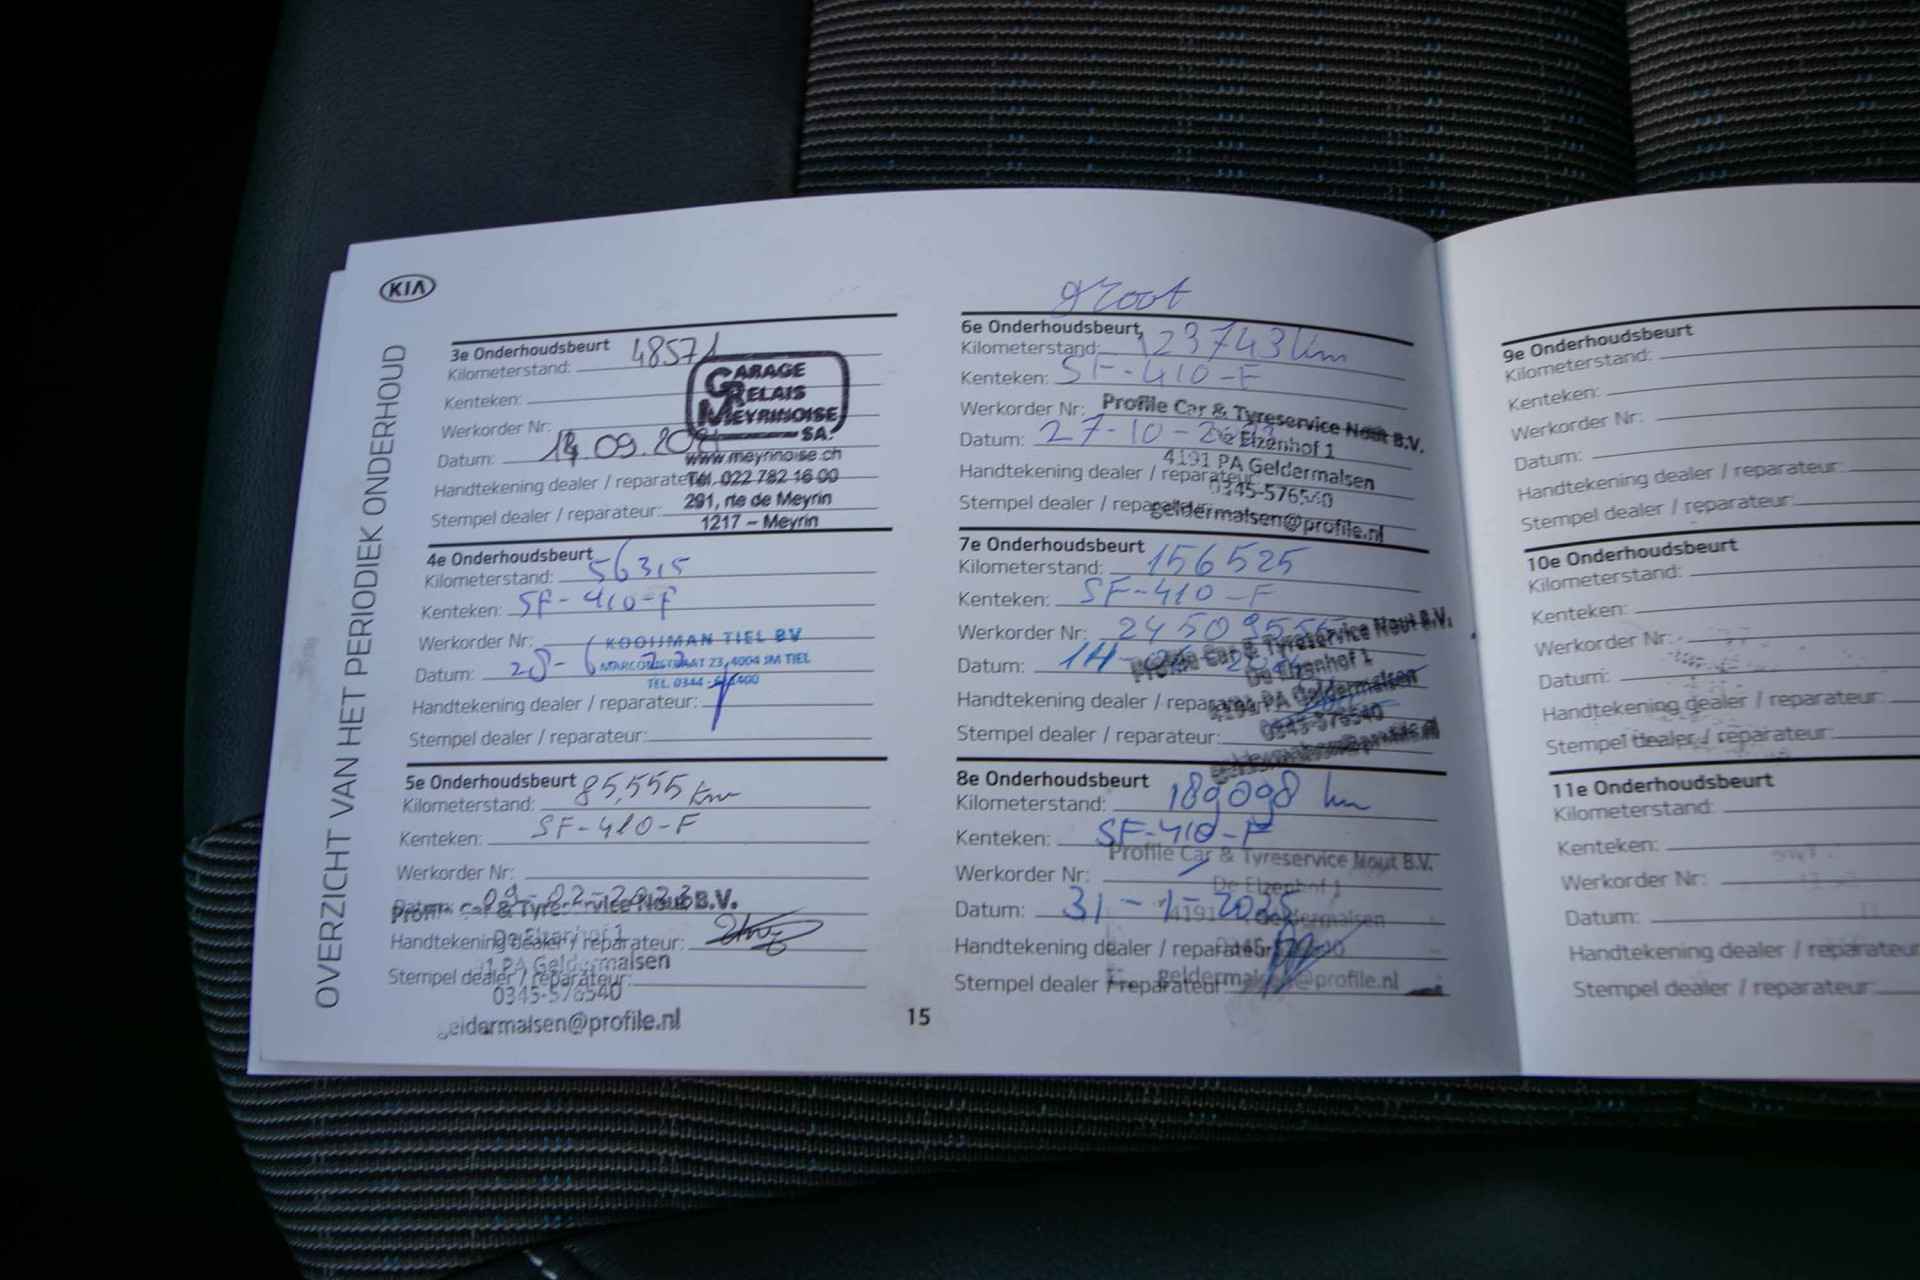 KIA
OVERZICHT VAN HET PERIODIEK ONDERHOUD
3e Onderhoudsbeurt
Kilometerstand: 48571
Kenteken:
Werkorder Nr:
Datum: 14.09.20
Handtekening dealer / reparateur:
Stempel dealer / reparateur:
GARAGE
RELAIS
MEYRINOISE
SA.
www.meyrinoise.ch
Tél. 022 782 16 00
291, rte de Meyrin
1217 – Meyrin
4e Onderhoudsbeurt
Kilometerstand: 56315
Kenteken: SF-410-F
Werkorder Nr:
Datum:
Handtekening dealer / reparateur:
Stempel dealer / reparateur:
KOOIJMAN TIEL BV
MARCONISTRAAT 23, 4004 JM TIEL
TEL. 0344 -
5e Onderhoudsbeurt
Kilometerstand: 85,555 km
Kenteken: SF-410-F
Werkorder Nr:
Datum: 09-02-2023
Handtekening dealer / reparateur:
Stempel dealer / reparateur:
Profile Car & Tyreservice Nout B.V.
De Elzenhof 1
PA Geldermalsen
0345-576540
geldermalsen@profile.nl
groot
6e Onderhoudsbeurt
Kilometerstand: 123743 km
Kenteken: SF-410-F
Werkorder Nr:
Datum: 27-10-
Handtekening dealer / reparateur:
Stempel dealer / reparateur:
Profile Car & Tyreservice Nout B.V.
De Elzenhof 1
4191 PA Geldermalsen
0345-576540
geldermalsen@profile.nl
7e Onderhoudsbeurt
Kilometerstand: 156525
Kenteken: SF-410-F
Werkorder Nr:
Datum:
Handtekening dealer / reparateur:
Stempel dealer / reparateur:
Profile Car & Tyreservice Nout B.V.
De Elzenhof 1
4191 PA Geldermalsen
0345-576540
geldermalsen@profile.nl
8e Onderhoudsbeurt
Kilometerstand: 189098 km
Kenteken: SF-410-F
Werkorder Nr:
Datum: 31-1-2025
Handtekening dealer / reparateur:
Stempel dealer / reparateur:
Profile Car & Tyreservice Nout B.V.
De Elzenhof 1
4191 Geldermalsen
geldermalsen@profile.nl
15
9e Onderhoudsbeurt
Kilometerstand:
Kenteken:
Werkorder Nr:
Datum:
Handtekening dealer / reparateur:
Stempel dealer / reparateur:
10e Onderhoudsbeurt
Kilometerstand:
Kenteken:
Werkorder Nr:
Datum:
Handtekening dealer / reparateur:
Stempel dealer / reparateur:
11e Onderhoudsbeurt
Kilometerstand:
Kenteken:
Werkorder Nr:
Datum:
Handtekening dealer / reparateur
Stempel dealer / reparateur: